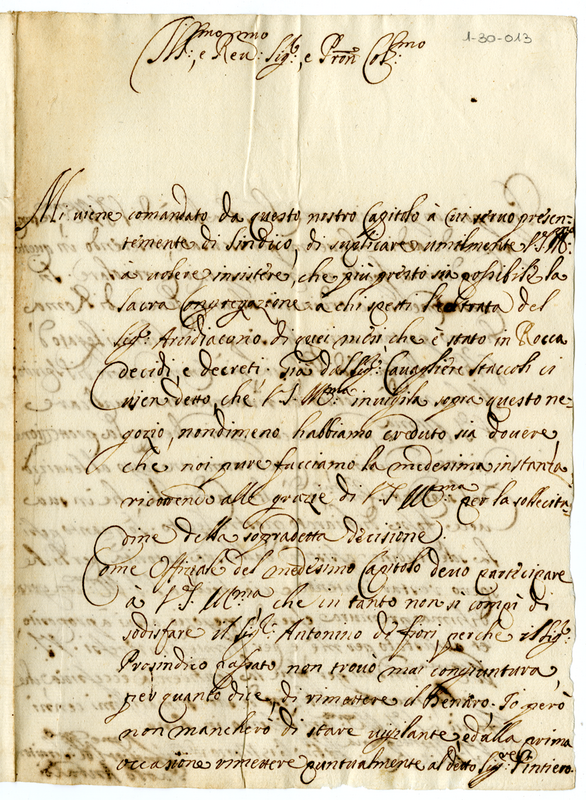 1-30-013
Ill:mo, e Rev:mo Sig:r, e Pron Col:mo
Mi viene comandato da questo nostro Capitolo à cui servo presen-
temente di Sindico, di suplicare umilmente V.S. Ill:ma
à volere insistere, che più presto sia possibile la
Sacra Congregazione à chi spetti l'entrata del
Sig:r Arcidiacono di quei mesi che è stato in Rocca
decidi e decreti. Già dal Sig:r Cavagliere Staccoli ci
vien detto che V.S. Ill:ma invigila sopra questo ne-
gozio, nondimeno habbiamo creduto sia dovere,
che noi pure facciamo la medesima instanza
ricorrendo alle grazie di V.S. Ill:ma per la sollecita-
zione della sopradetta decisione.
Come Offiziale del medesimo Capitolo devo participare
à V.S. Ill:ma che in tanto non si compì di
sodisfare il Sig:r Antonino de fiori perche il Sig:r
Prosindico passato non trovò mai congiuntura,
per quanto dice, di rimettere il denaro. Io però
non mancherò di stare vigilante, ed alla prima
occasione rimettere puntualmente al detto Sig:re